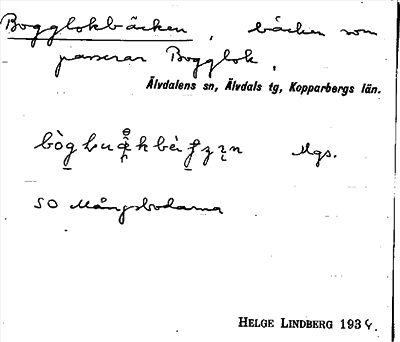 Bogglokbäcken, bäcken som
passerar Bogglok,
Älvdalens sn, Älvdals tg, Kopparbergs län.
Mgs.
SO Mångsbodarna
HELGE LINDBERG 1934.